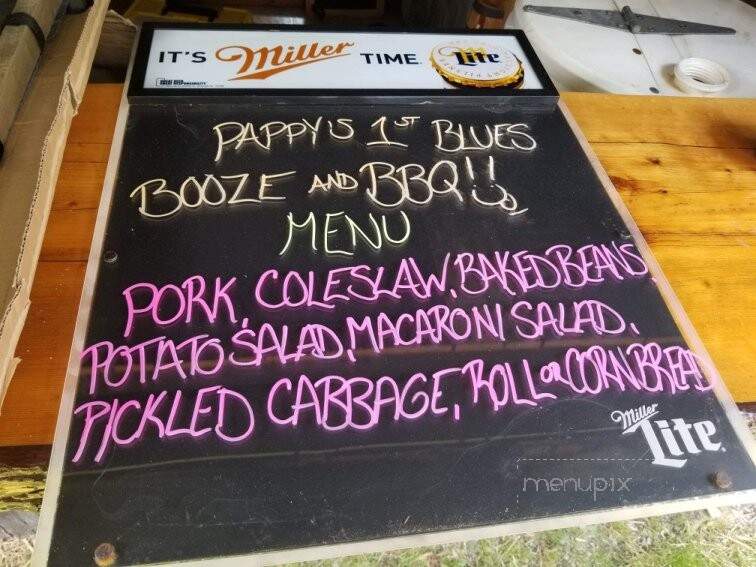 IT'S Miller TIME. Lite
PAPPY'S 1ST BLUES
BOOZE AND BBQ!!
MENU
PORK, COLESLAW, BAKED BEANS,
POTATO SALAD, MACARONI SALAD,
PICKLED CABBAGE, ROLL OR CORNBREAD
Miller
Lite
menupix